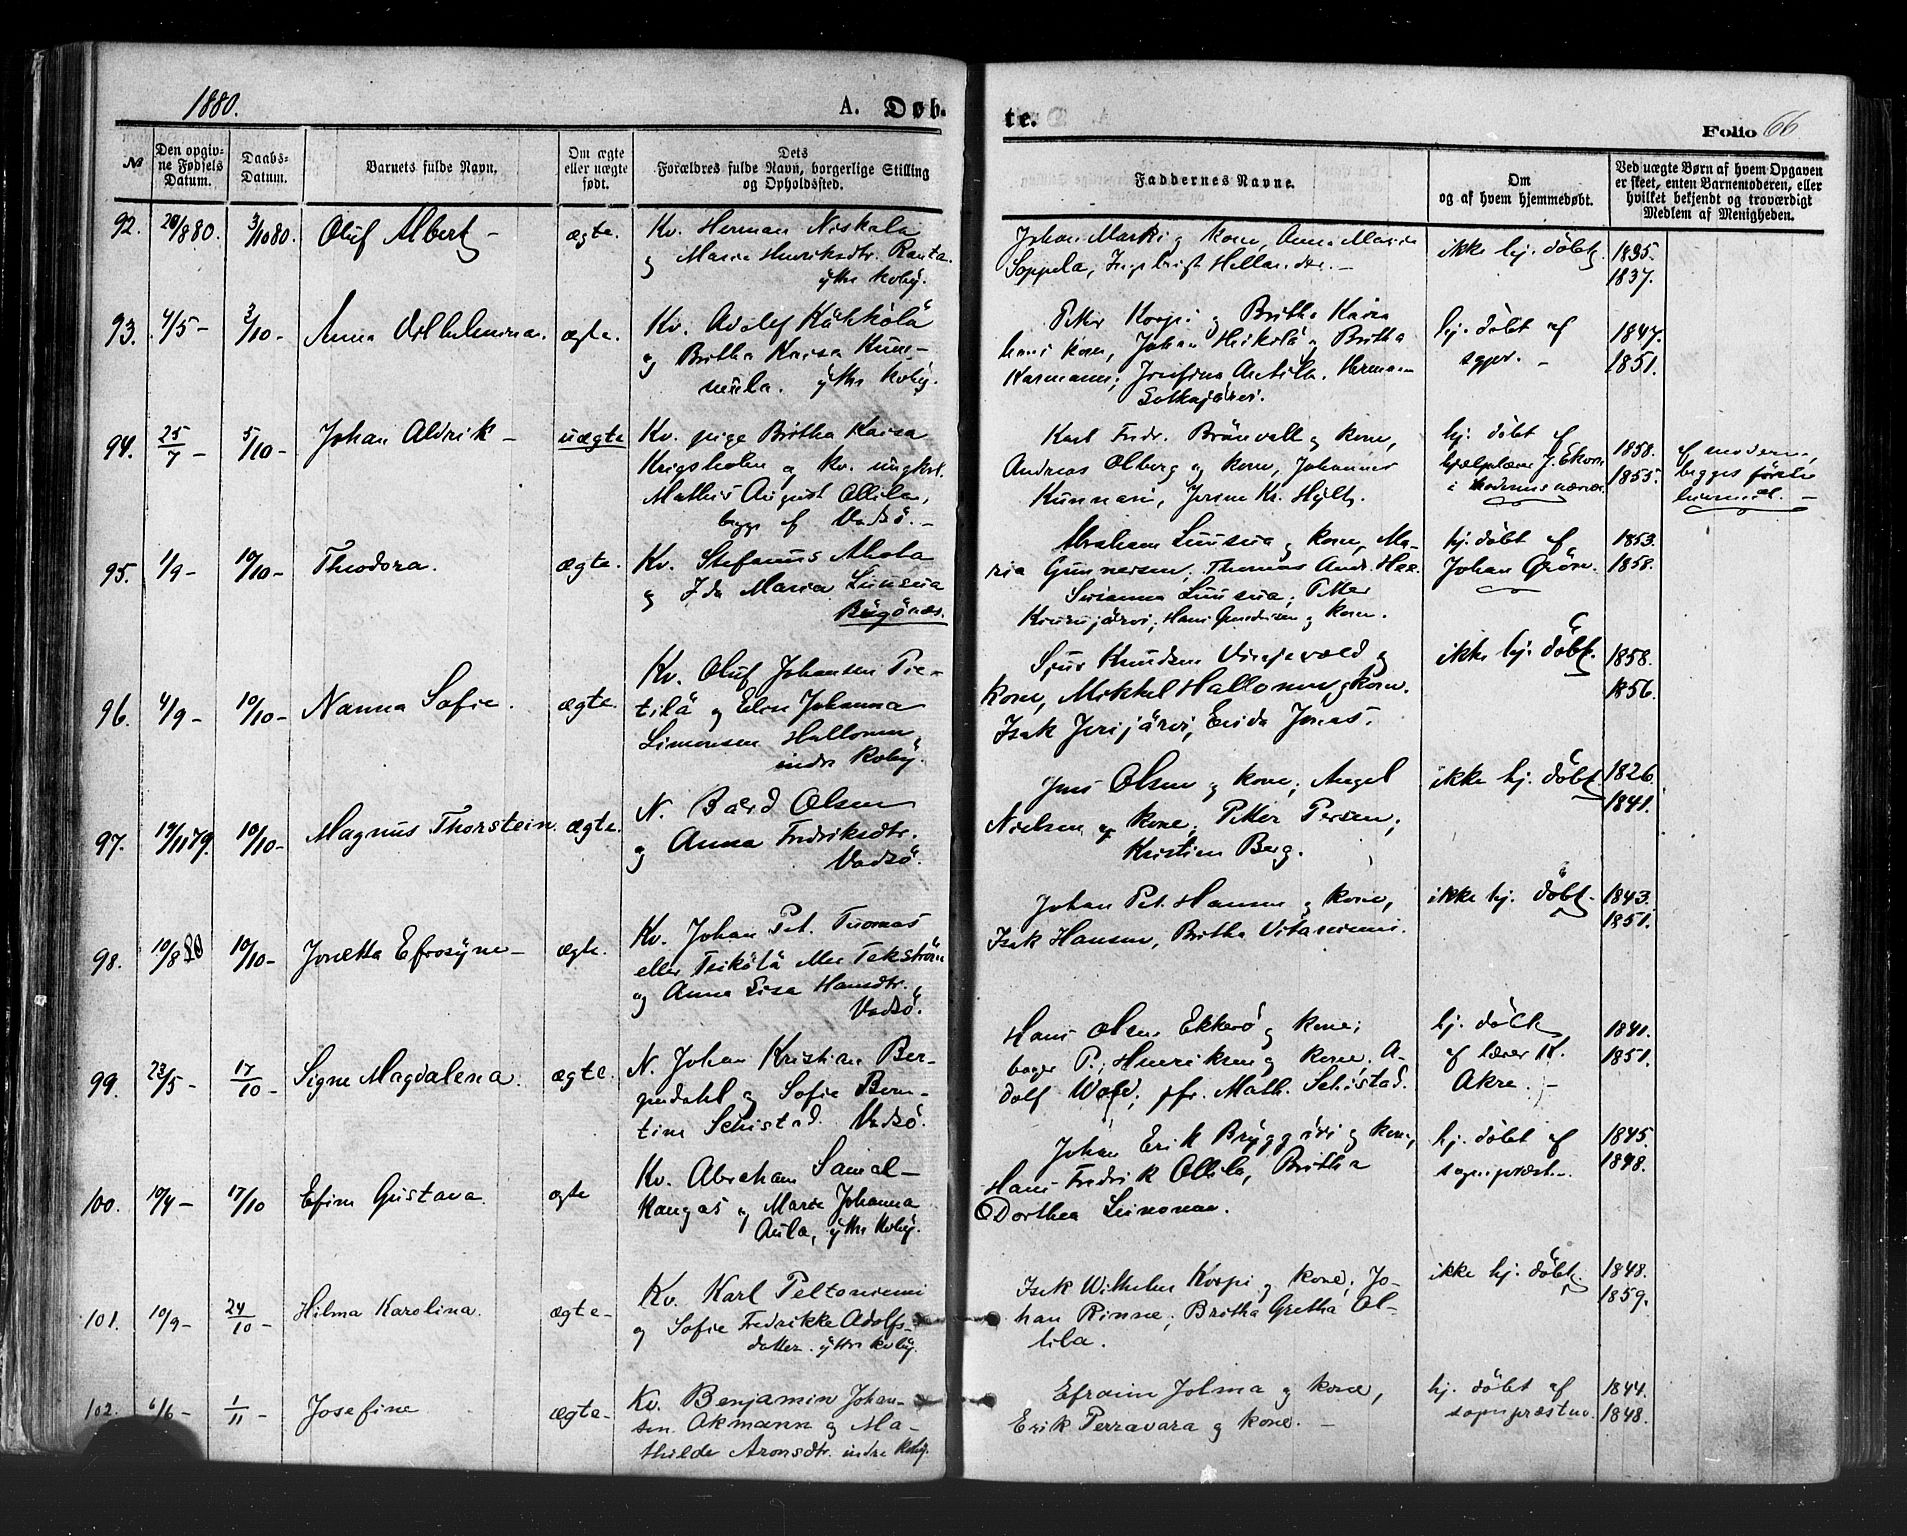 1880.
A. Døb-
№
Den opgiv-
ne Fødsels
Datum.
Daabs-
Datum.
Barnets fulde Navn.
Om ægte
eller uægte
født.
Dets
Forældres fulde Navn, borgerlige Stilling
og Opholdssted.
92. 20/8 80. 3/10 80. Oluf Albert - ægte. Kv. Herman Niskala
og Maria Henriksdtr. Ranta.
yttre Kvby.
93. 4/5 - 3/10 - Anna Vilhelmina. ægte. Kv. Adolf
og Britha Kaisa
yttre Kvby.
94. 25/7 - 5/10 - Johan Aldrik - uægte Kv. pige Britha Kaisa
Krigsholm og Kv. ungkrl.
Mathis August Ollila,
begge af Vadsö. -
95. 1/9 - 10/10 - Theodora. ægte. Kv. Stefanus Ahola
og Ida Maria Luusua
Bugönæs.
96. 4/9 - 10/10 - Nanna Sofie. ægte. Kv. Oluf Johansen Pie-
tilä og Elen Johanna
Simonsen Hallonen,
indre Kvby.
97. 19/11 79. 10/10 - Magnus Thorstein. ægte. N. Bård Olsen
og Anna Fredriksdtr.
Vadsö.
98. 10/8 80 10/10 - Jonetta Efrosyne - ægte. Kv. Johan Pet. Tuomas
eller eller Tekström
og Anna Lisa Hansdtr.,
Vadsö.
99. 23/5 - 17/10 - Signe Magdalena. ægte. N. Johan Kristian Ber-
gendahl og Sofie Bern-
tine Schistad. Vadsö.
100. 10/4 - 17/10 Efine Gustava ægte Kv. Abraham Samiel-
Kangas og Marie Johanna
Aula, yttre Kvby.
101. 10/9 - 24/10 - Hilma Karolina. ægte - Kv. Karl Peltoniemi
og Sofie Fredrikke Adolfs-
datter. yttre Kvby.
102. 6/6 - 1/11 - Josefine ægte - Kv. Benjamin Johan-
sen Akmann og Ma-
thilde Aronsdtr. indre Kvby.
te.
Folio 66
Faddernes Navne.
Om
og af hvem hjemmedøbt.
Ved uægte Børn af hvem Opgaven
er skeet, enten Barnemoderen, eller
hvilket bekjendt og troværdigt
Medlem af Menigheden.
Johan Marki og kone, Anna Maria
Soppela, Ingebrigt -
ikke hj. döbt. 1835.
1837.
Petter Korpi og Britha Kaisa
hans kone, Johan Heikilä og Britha
Karmann; Josefina Antila. Herman
Sotkajärvi.
hj. döbt af
sgpr. -
1847.
1851.
Karl Fredr. Brönvall og kone,
Andreas Olberg og kone, Johannes
Kunnari,
hj. döbt af
1858.
1855.
af moderen,
begges förste
leiermaal. -
Abraham Luusua og kone, Ma-
ria Gunnersen, Thomas
Luusua, Petter
og kone.
hj. döbt af
Johan
1853.
1858.
Sjur Knudsen og
kone, Mikkel Hallonen og kone.
Isak Jerijärvi, Jonas.
ikke hj. döbt. 1858.
1856.
Jens Olsen og kone; Angel
Nielsen og kone, Petter Persen,
Kristian Berg.
ikke hj. döbt. 1826.
1841.
Johan Pet. Hansen og kone,
Isak Hansen, Britha Vitaniemi.
ikke hj. döbt. 1843.
1851.
Hans Olsen Ekkerö og kone;
bager P. Henriksen og kone, A-
dolf Wold, pfr. Math. Schistad.
hj. döbt
af lærer
Akre. -
1841.
1851.
Johan Erik og kone,
Hans Fredrik Ollila, Britha
Dorthea
hj. döbt af
sognepræst -
1845.
1848.
Isak Wilhelm Korpi og kone, Jo-
han Rinne, Britha Gretha Ol-
lila.
ikke hj. döbt. 1848.
1859.
Efraim Jolma og kone,
Erik Perravara og kone. -
hj. döbt af
sognepræsten.
1844.
1848.